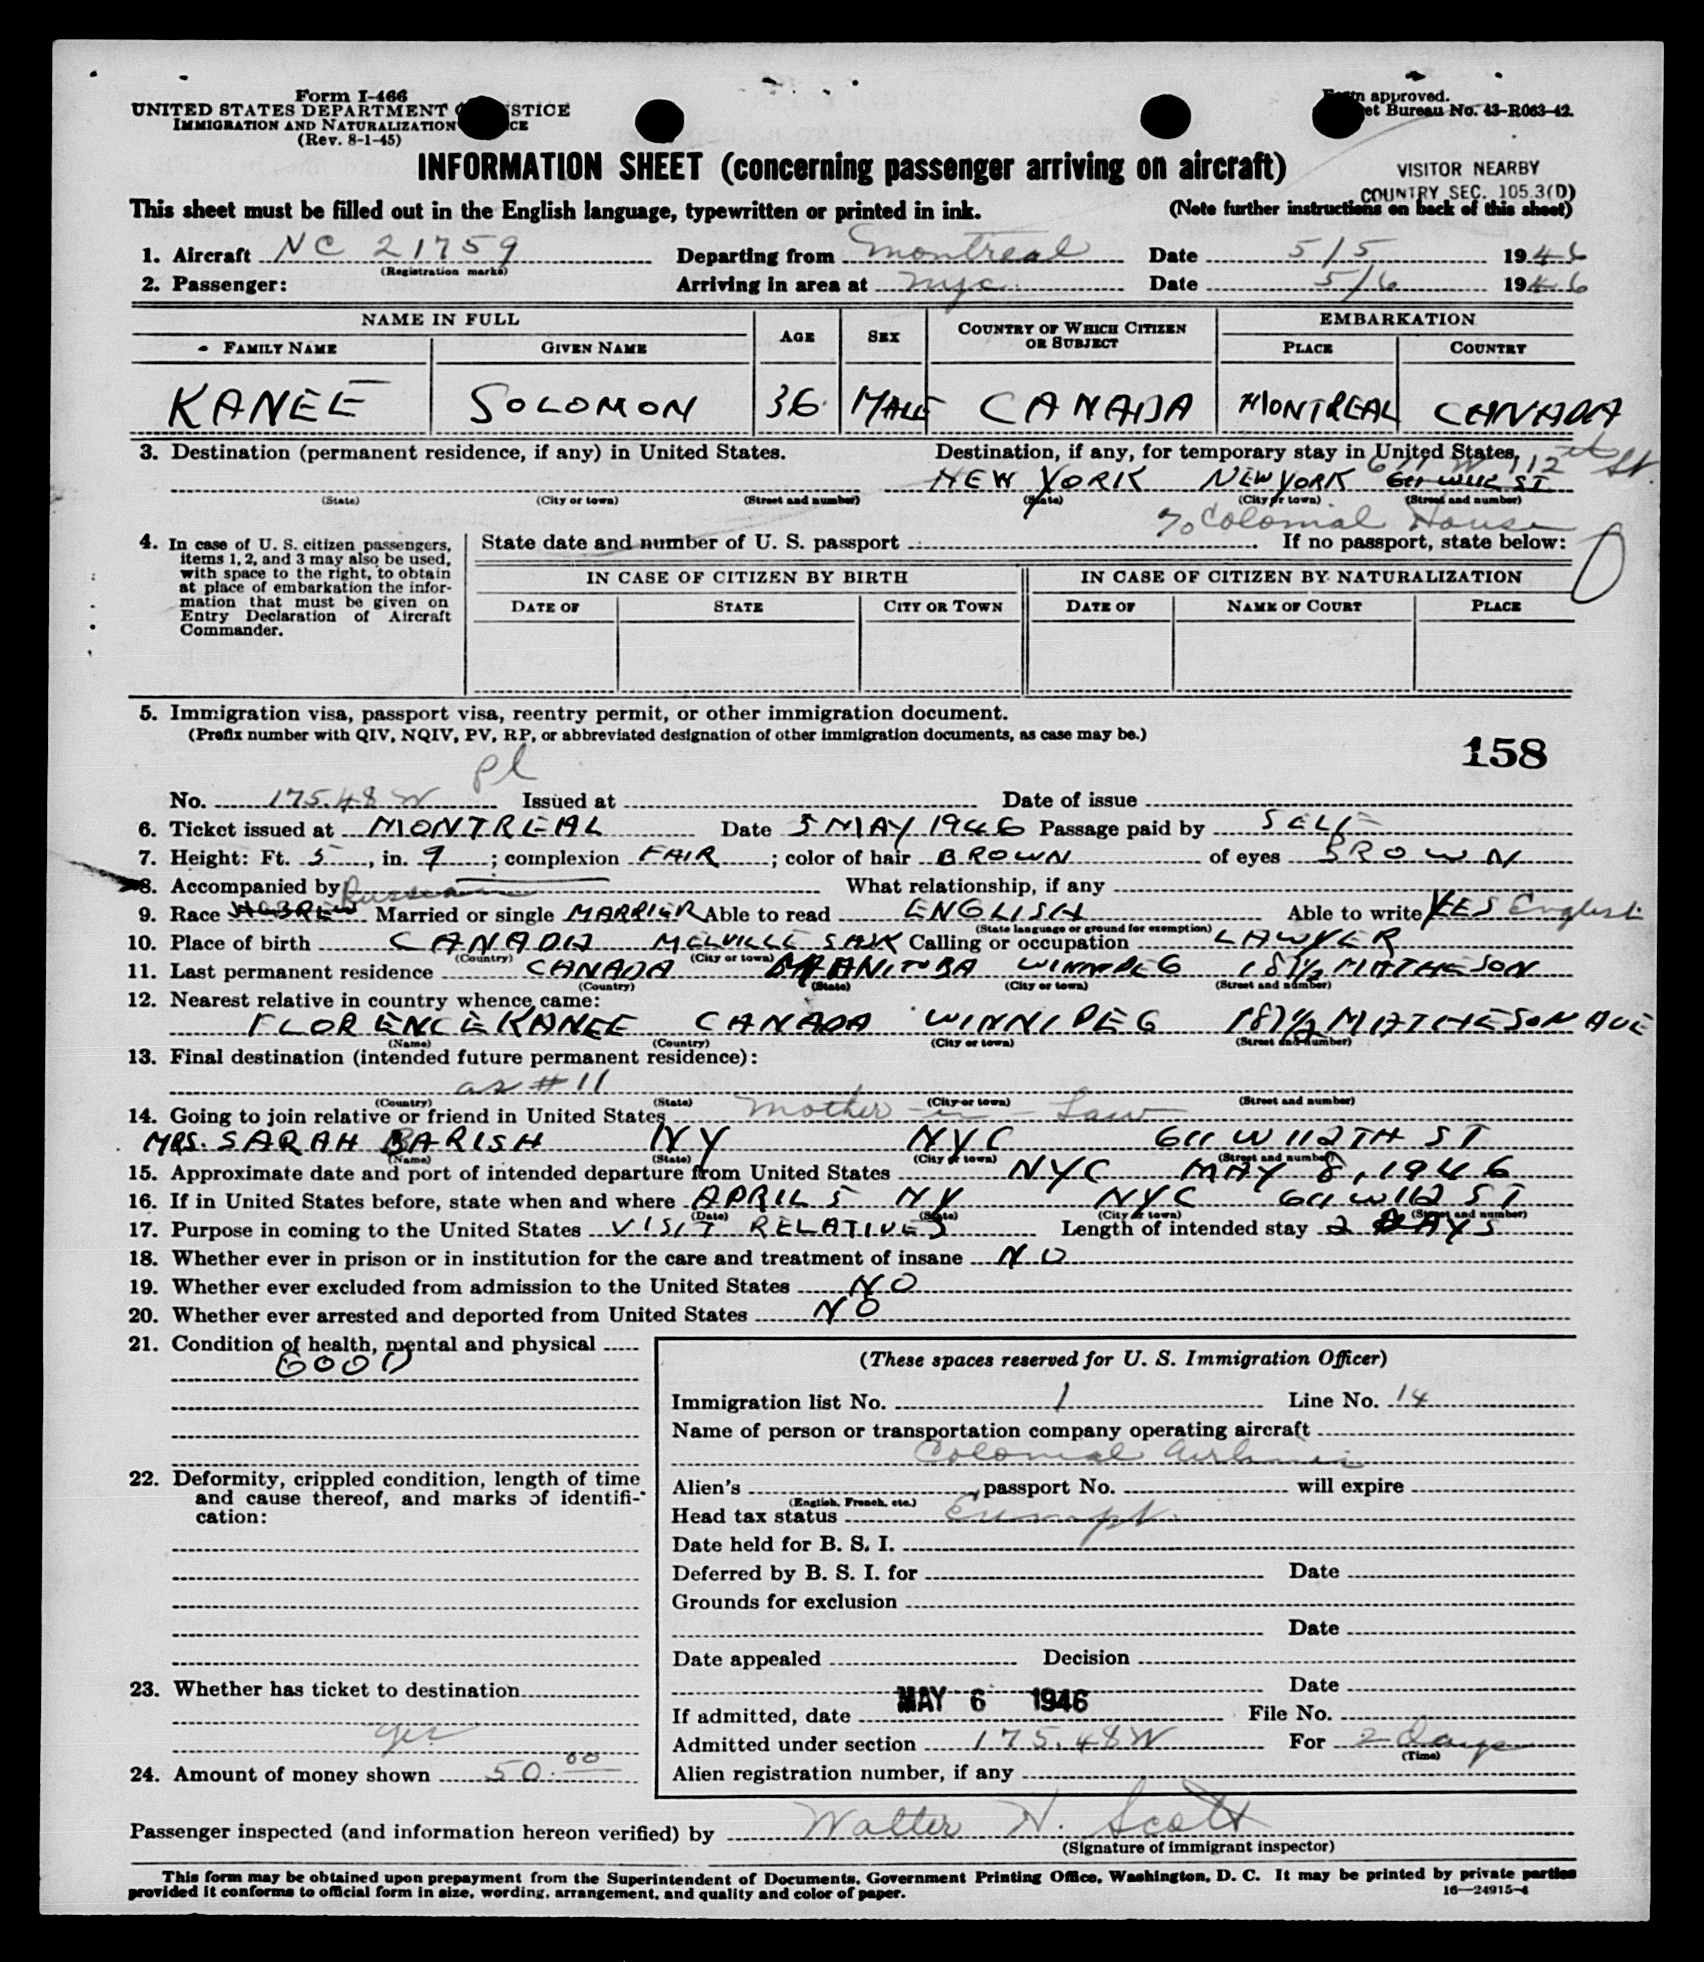 Form I-466
UNITED STATES DEPARTMENT STICE
IMMIGRATION AND NATURALIZATION CE
(Rev. 8-1-45)
approved.
et Bureau No. 43-R063-42.
INFORMATION SHEET (concerning passenger arriving on aircraft)
VISITOR NEARBY
COUNTRY SEC. 105.3(D)
This sheet must be filled out in the English language, typewritten or printed in ink.
(Note further instructions on back of this sheet)
1. Aircraft NC 21759 Departing from Montreal Date 5/5 1946
(Registration marks)
2. Passenger: Arriving in area at nyc Date 5/6 1946
NAME IN FULL AGE SEX COUNTRY OF WHICH CITIZEN OR SUBJECT EMBARKATION
FAMILY NAME GIVEN NAME PLACE COUNTRY
KANEE SOLOMON 36 MALE CANADA MONTREAL CANADA
3. Destination (permanent residence, if any) in United States. Destination, if any, for temporary stay in United States.
611 W 112th St.
NEW YORK NEW YORK 611 W112 ST
(State) (City or town) (Street and number) (State) (City or town) (Street and number)
% Colonial House
4. In case of U. S. citizen passengers, items 1, 2, and 3 may also be used, with space to the right, to obtain at place of embarkation the information that must be given on Entry Declaration of Aircraft Commander.
State date and number of U. S. passport If no passport, state below:
IN CASE OF CITIZEN BY BIRTH IN CASE OF CITIZEN BY NATURALIZATION
DATE OF STATE CITY OR TOWN DATE OF NAME OF COURT PLACE
5. Immigration visa, passport visa, reentry permit, or other immigration document.
(Prefix number with QIV, NQIV, PV, RP, or abbreviated designation of other immigration documents, as case may be.)
158
pl
No. 175.48 W Issued at Date of issue
6. Ticket issued at MONTREAL Date 5 MAY 1946 Passage paid by SELF
7. Height: Ft. 5, in. 9; complexion FAIR; color of hair BROWN of eyes BROWN
8. Accompanied by What relationship, if any
Russian
9. Race HEBREW Married or single MARRIER Able to read ENGLISH Able to write YES English
(State language or ground for exemption)
10. Place of birth CANADA MELVILLE SASK Calling or occupation LAWYER
(Country) (City or town)
11. Last permanent residence CANADA MANITOBA WINNIPEG 187½ MATHESON
(Country) (State) (City or town) (Street and number)
12. Nearest relative in country whence came:
FLORENCE KANEE CANADA WINNIPEG 187½ MATHESON AVE
(Name) (Country) (City or town) (Street and number)
13. Final destination (intended future permanent residence):
as #11
(Country) (State) (City or town) (Street and number)
14. Going to join relative or friend in United States Mother-in-Law
MRS. SARAH BARISH NY NYC 611 W 112TH ST
(Name) (State) (City or town) (Street and number)
15. Approximate date and port of intended departure from United States NYC MAY 8, 1946
16. If in United States before, state when and where APRIL 5 NY NYC 611 W 112 ST
(Date) (State) (City or town) (Street and number)
17. Purpose in coming to the United States VISIT RELATIVES Length of intended stay 2 DAYS
18. Whether ever in prison or in institution for the care and treatment of insane NO
19. Whether ever excluded from admission to the United States NO
20. Whether ever arrested and deported from United States NO
21. Condition of health, mental and physical
GOOD
22. Deformity, crippled condition, length of time and cause thereof, and marks of identification:
23. Whether has ticket to destination
yes
24. Amount of money shown 50.00
(These spaces reserved for U. S. Immigration Officer)
Immigration list No. 1 Line No. 14
Name of person or transportation company operating aircraft
Colonial Airlines
Alien's passport No. will expire
(English, French, etc.)
Head tax status Exempt
Date held for B. S. I.
Deferred by B. S. I. for Date
Grounds for exclusion
Date
Date appealed Decision
Date
If admitted, date MAY 6 1946 File No.
Admitted under section 175.48W For 2 days
(Time)
Alien registration number, if any
Passenger inspected (and information hereon verified) by Walter H. Scott
(Signature of immigrant inspector)
This form may be obtained upon prepayment from the Superintendent of Documents, Government Printing Office, Washington, D. C. It may be printed by private parties
provided it conforms to official form in size, wording, arrangement, and quality and color of paper.
16—24915-4